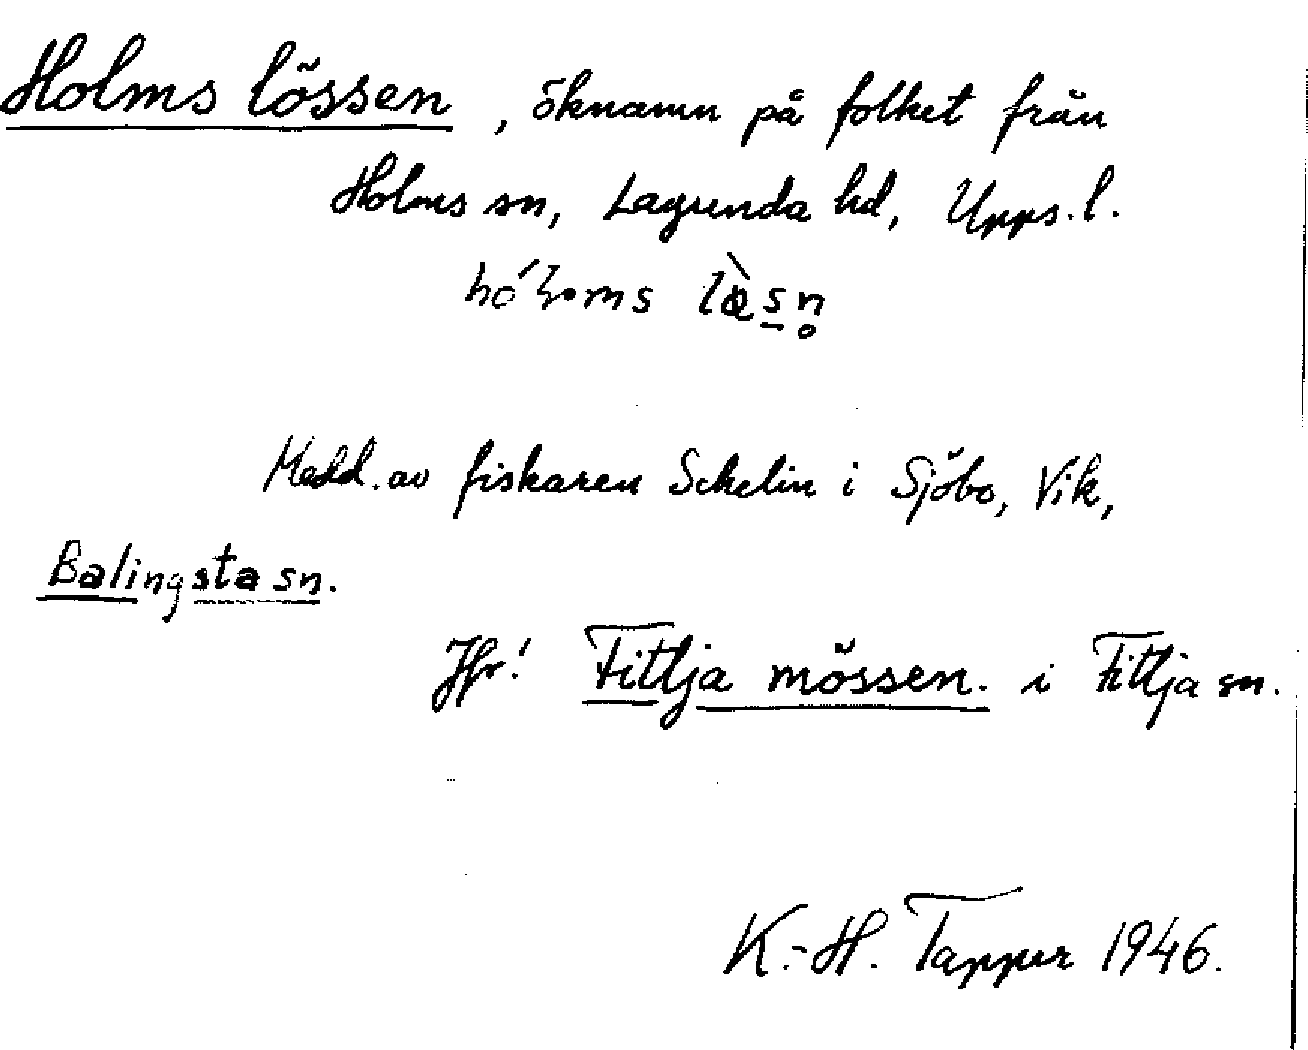 Holms lössen, öknamn på folket från
Holms sn, Lagunda hd, Upps. l.
Medd. av fiskaren Schelin i Sjöbo, Vik,
Balingsta sn.
Jfr! Fittja mössen. i Fittja sn.
K.-H. Tapper 1946.